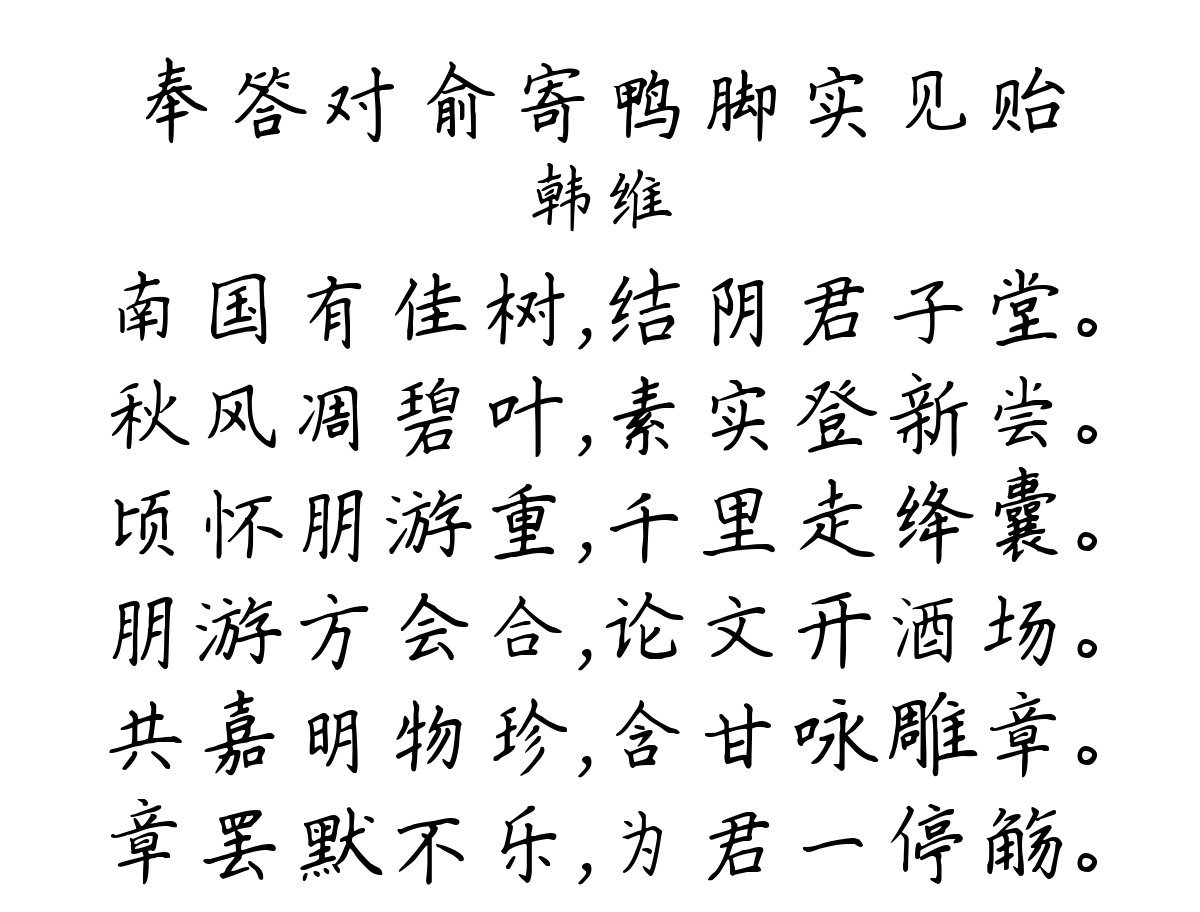 奉答对俞寄鸭脚实见贻
韩维
南国有佳树,结阴君子堂。
秋风凋碧叶,素实登新尝。
顷怀朋游重,千里走绛囊。
朋游方会合,论文开酒场。
共嘉明物珍,含甘咏雕章。
章罢默不乐,为君一停觞。